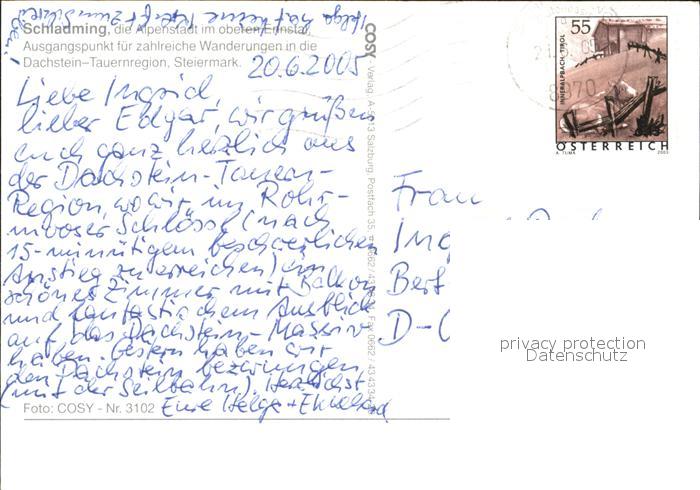 Helga hat keine
Schladming, die Alpenstadt im oberen Ennstal,
Ausgangspunkt für zahlreiche Wanderungen in die
Dachstein–Tauernregion, Steiermark.
20.6.2005
Liebe Ingrid,
lieber Edgar, wir grüßen
euch ganz herzlich aus
der Dachstein-Tauern-
Region, wo wir im Rohr-
mooser Schlössl (nach
15-minütigem beschwerlichen
Anstieg zu erreichen) ein
schönes Zimmer mit Balkon
und fantastischem Ausblick
auf das Dachstein-Massiv
haben. Gestern haben wir
den Dachstein bezwungen
(mit der Seilbahn). Herzlichst
Eure Helga + Ekkehard
Foto: COSY - Nr. 3102
COSY Verlag, Salzburg, Postfach 35,
Frau
Ing
Bert
D-
55
INNERALPBACH, TIROL
ÖSTERREICH
A. TUMA 2003
privacy protection
Datenschutz